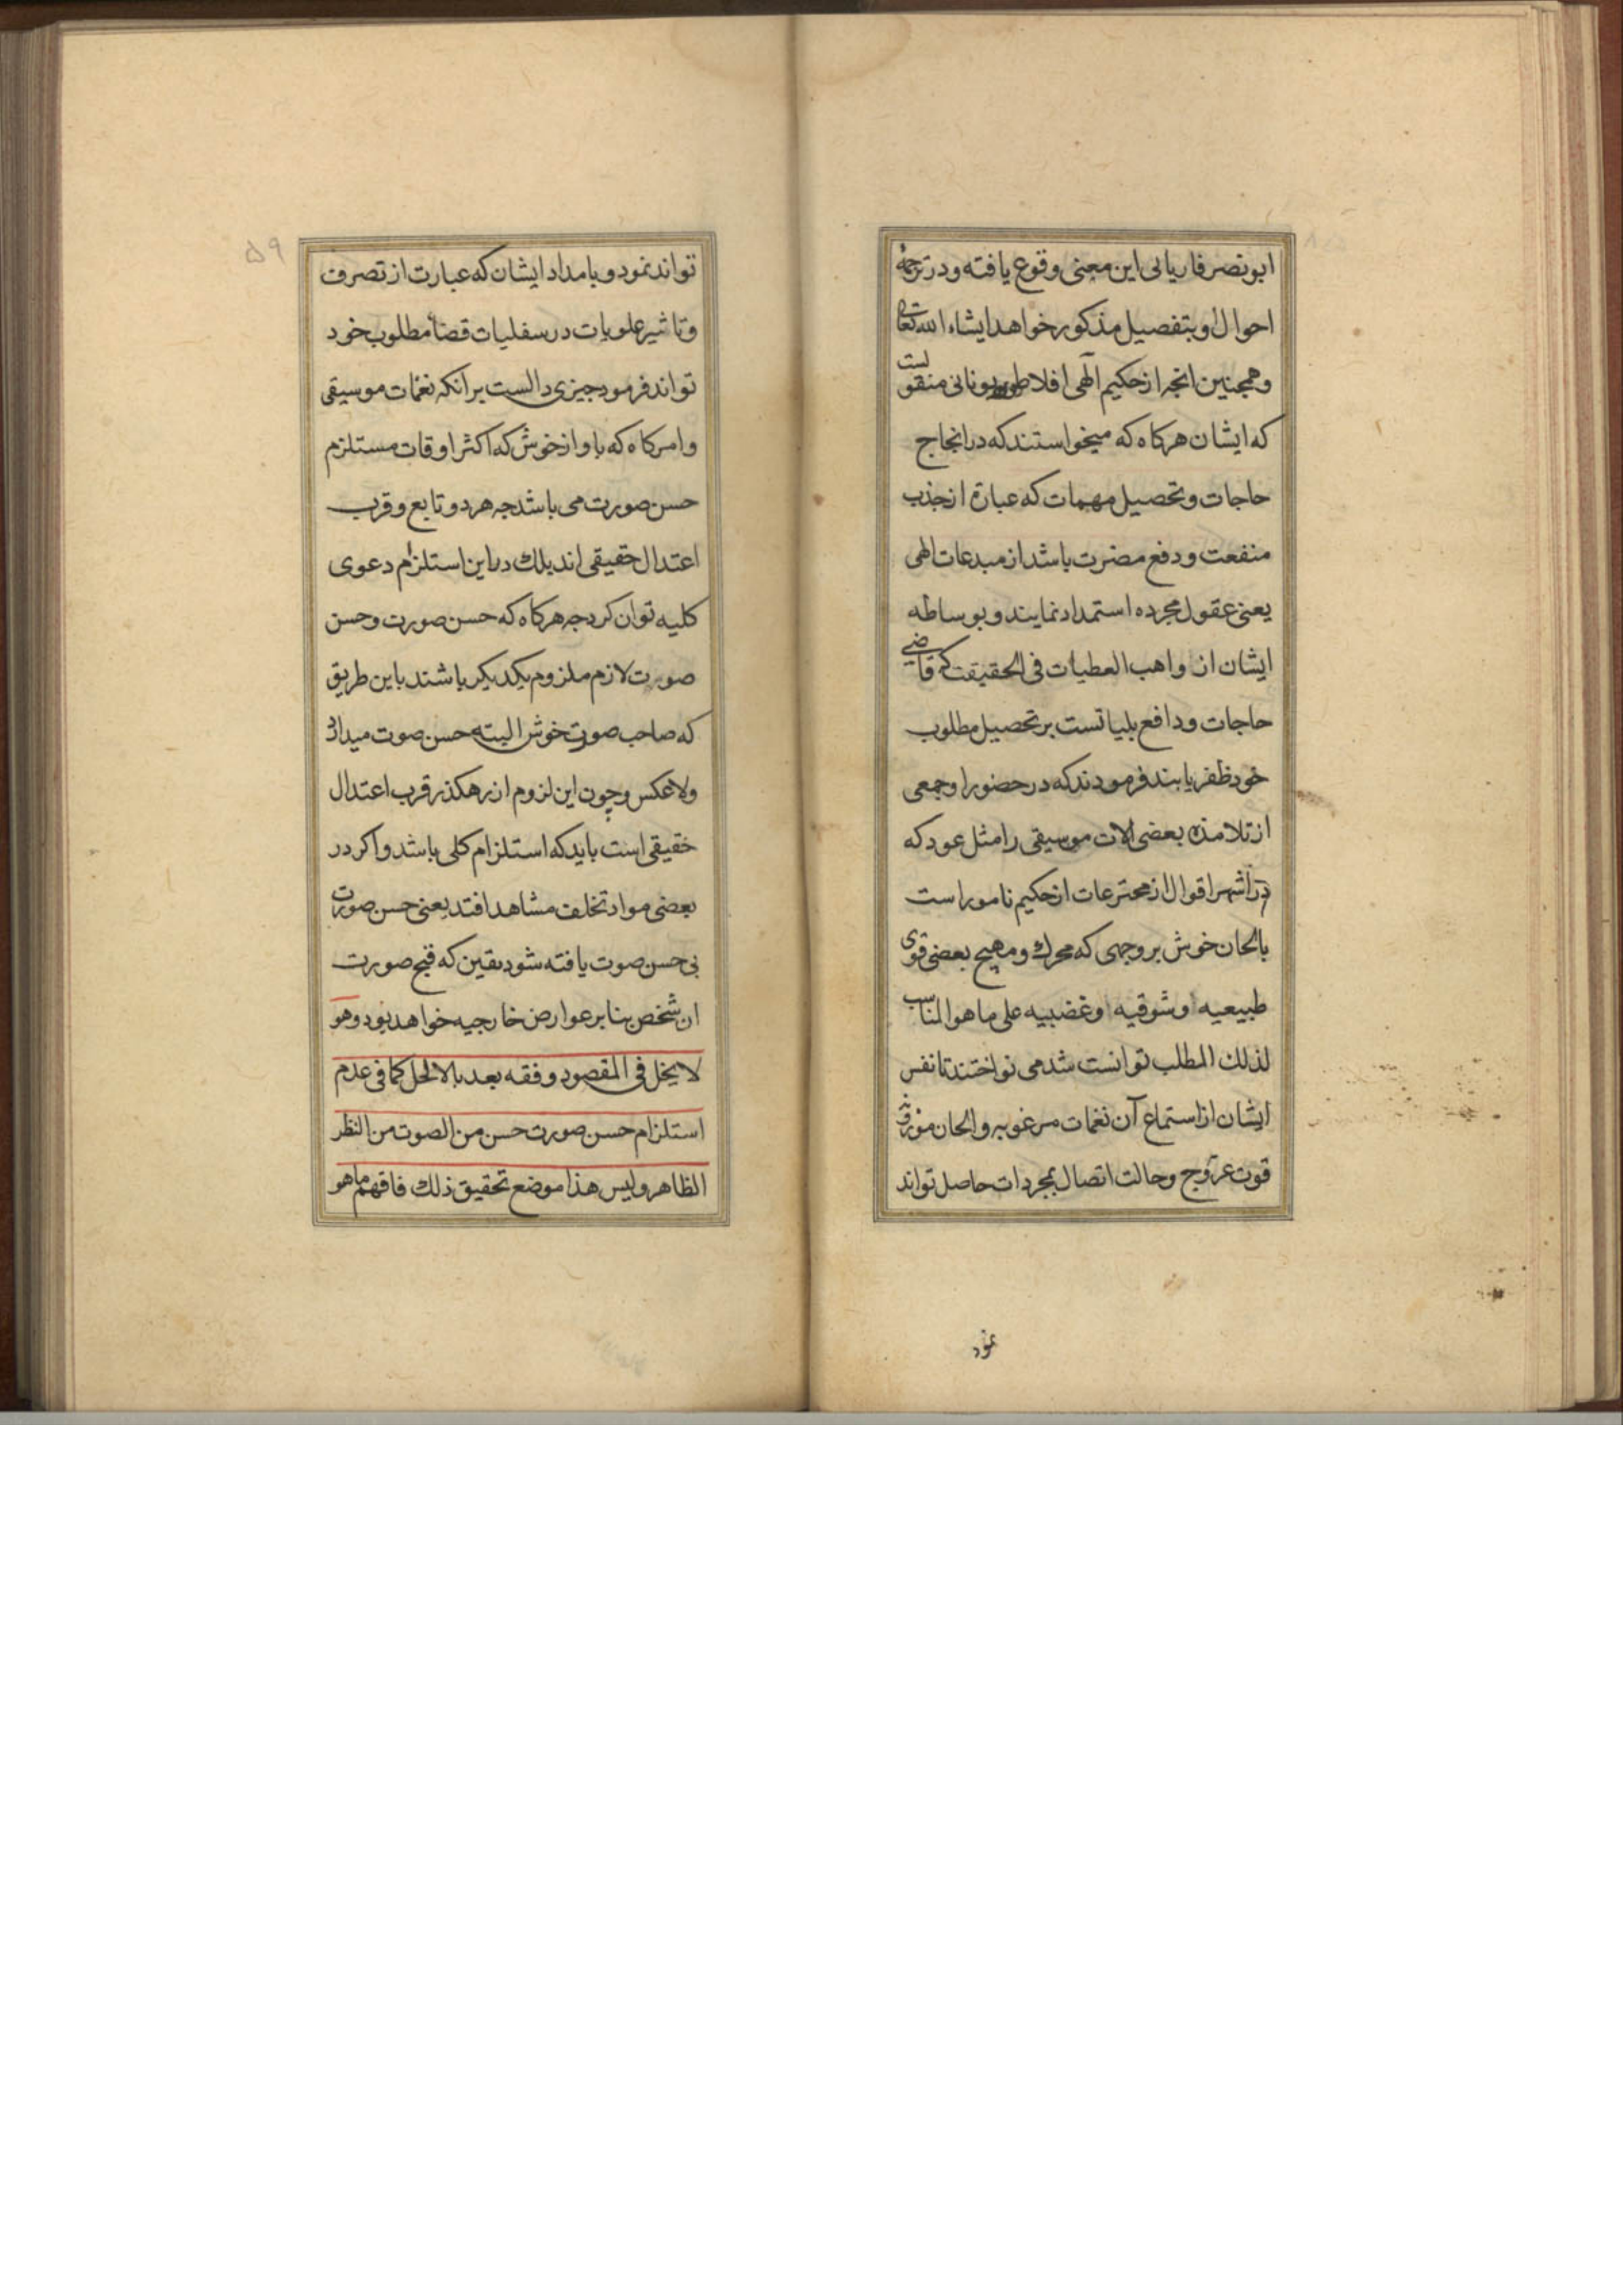 ابونصر فاریابی این معنی وقوع یافته و در ترجمهٔ
احوال او بتفصیل مذکور خواهد ایشاء الله تعالی
و همچنین انچه از حکیم الهی افلاطون یونانی منقولست
که ایشان هرکاه که میخواستند که در انجاح
حاجات و تحصیل مهمات که عبارة از جذب
منفعت و دفع مضرت باشد از مبدعات الهی
یعنی عقول مجرده استمداد نمایند و بوساطه
ایشان از واهب العطیات فی الحقیقت که قاضی
حاجات و دافع بلیاتست بر تحصیل مطلوب
خود ظفر یابند فرمودند که در حضور او جمعی
از تلامذه بعضی الات موسیقی را مثل عود که
در اشهر اقوال از مخترعات ان حکیم نامور است
بالحان خوش بر وجهی که محرك و مهیج بعضی قوی
طبیعیه او شوقیه او غضبیه علی ما هو المناسب
لذلك المطلب توانست شد می نواختند تا نفس
ایشان از استماع آن نغمات مرغوبه و الحان
قوت عروج و حالت اتصال بمجردات حاصل تواند
نمود
۵۹
تواند نمود و بامداد ایشان که عبارت از تصرف
و تاثیر علویات در سفلیات قضا مطلوب خود
تواند فرمود چیزی دالست بر انکه نغمات موسیقی
و امر کاه که باواز خوش که اکثر اوقات مستلزم
حسن صورت می باشد چه هر دو تابع و قرب
اعتدال حقیقی اند بلك در این استلزام دعوی
کلیه توان کرد چه هرکاه که حسن صورت و حسن
صورت لازم ملزوم یکدیکر باشند باین طریق
که صاحب صورت خوش البته حسن صوت میدارد
ولا عکس و چون این لزوم از رهکذر قرب اعتدال
حقیقی است باید که استلزام کلی باشد و اکر در
بعضی مواد تخلف مشاهد افتد یعنی حسن صورت
بی حسن صوت یافته شود یقین که قبح صورت
ان شخص بنا بر عوارض خارجیه خواهد بود و هو
لا یخل فی المقصود و فقه بعد بالا لحل کما فی عدم
استلزام حسن صورت حسن من الصوت من النظر
الظاهر و لیس هذا موضع تحقیق ذلك فافهم ما هو